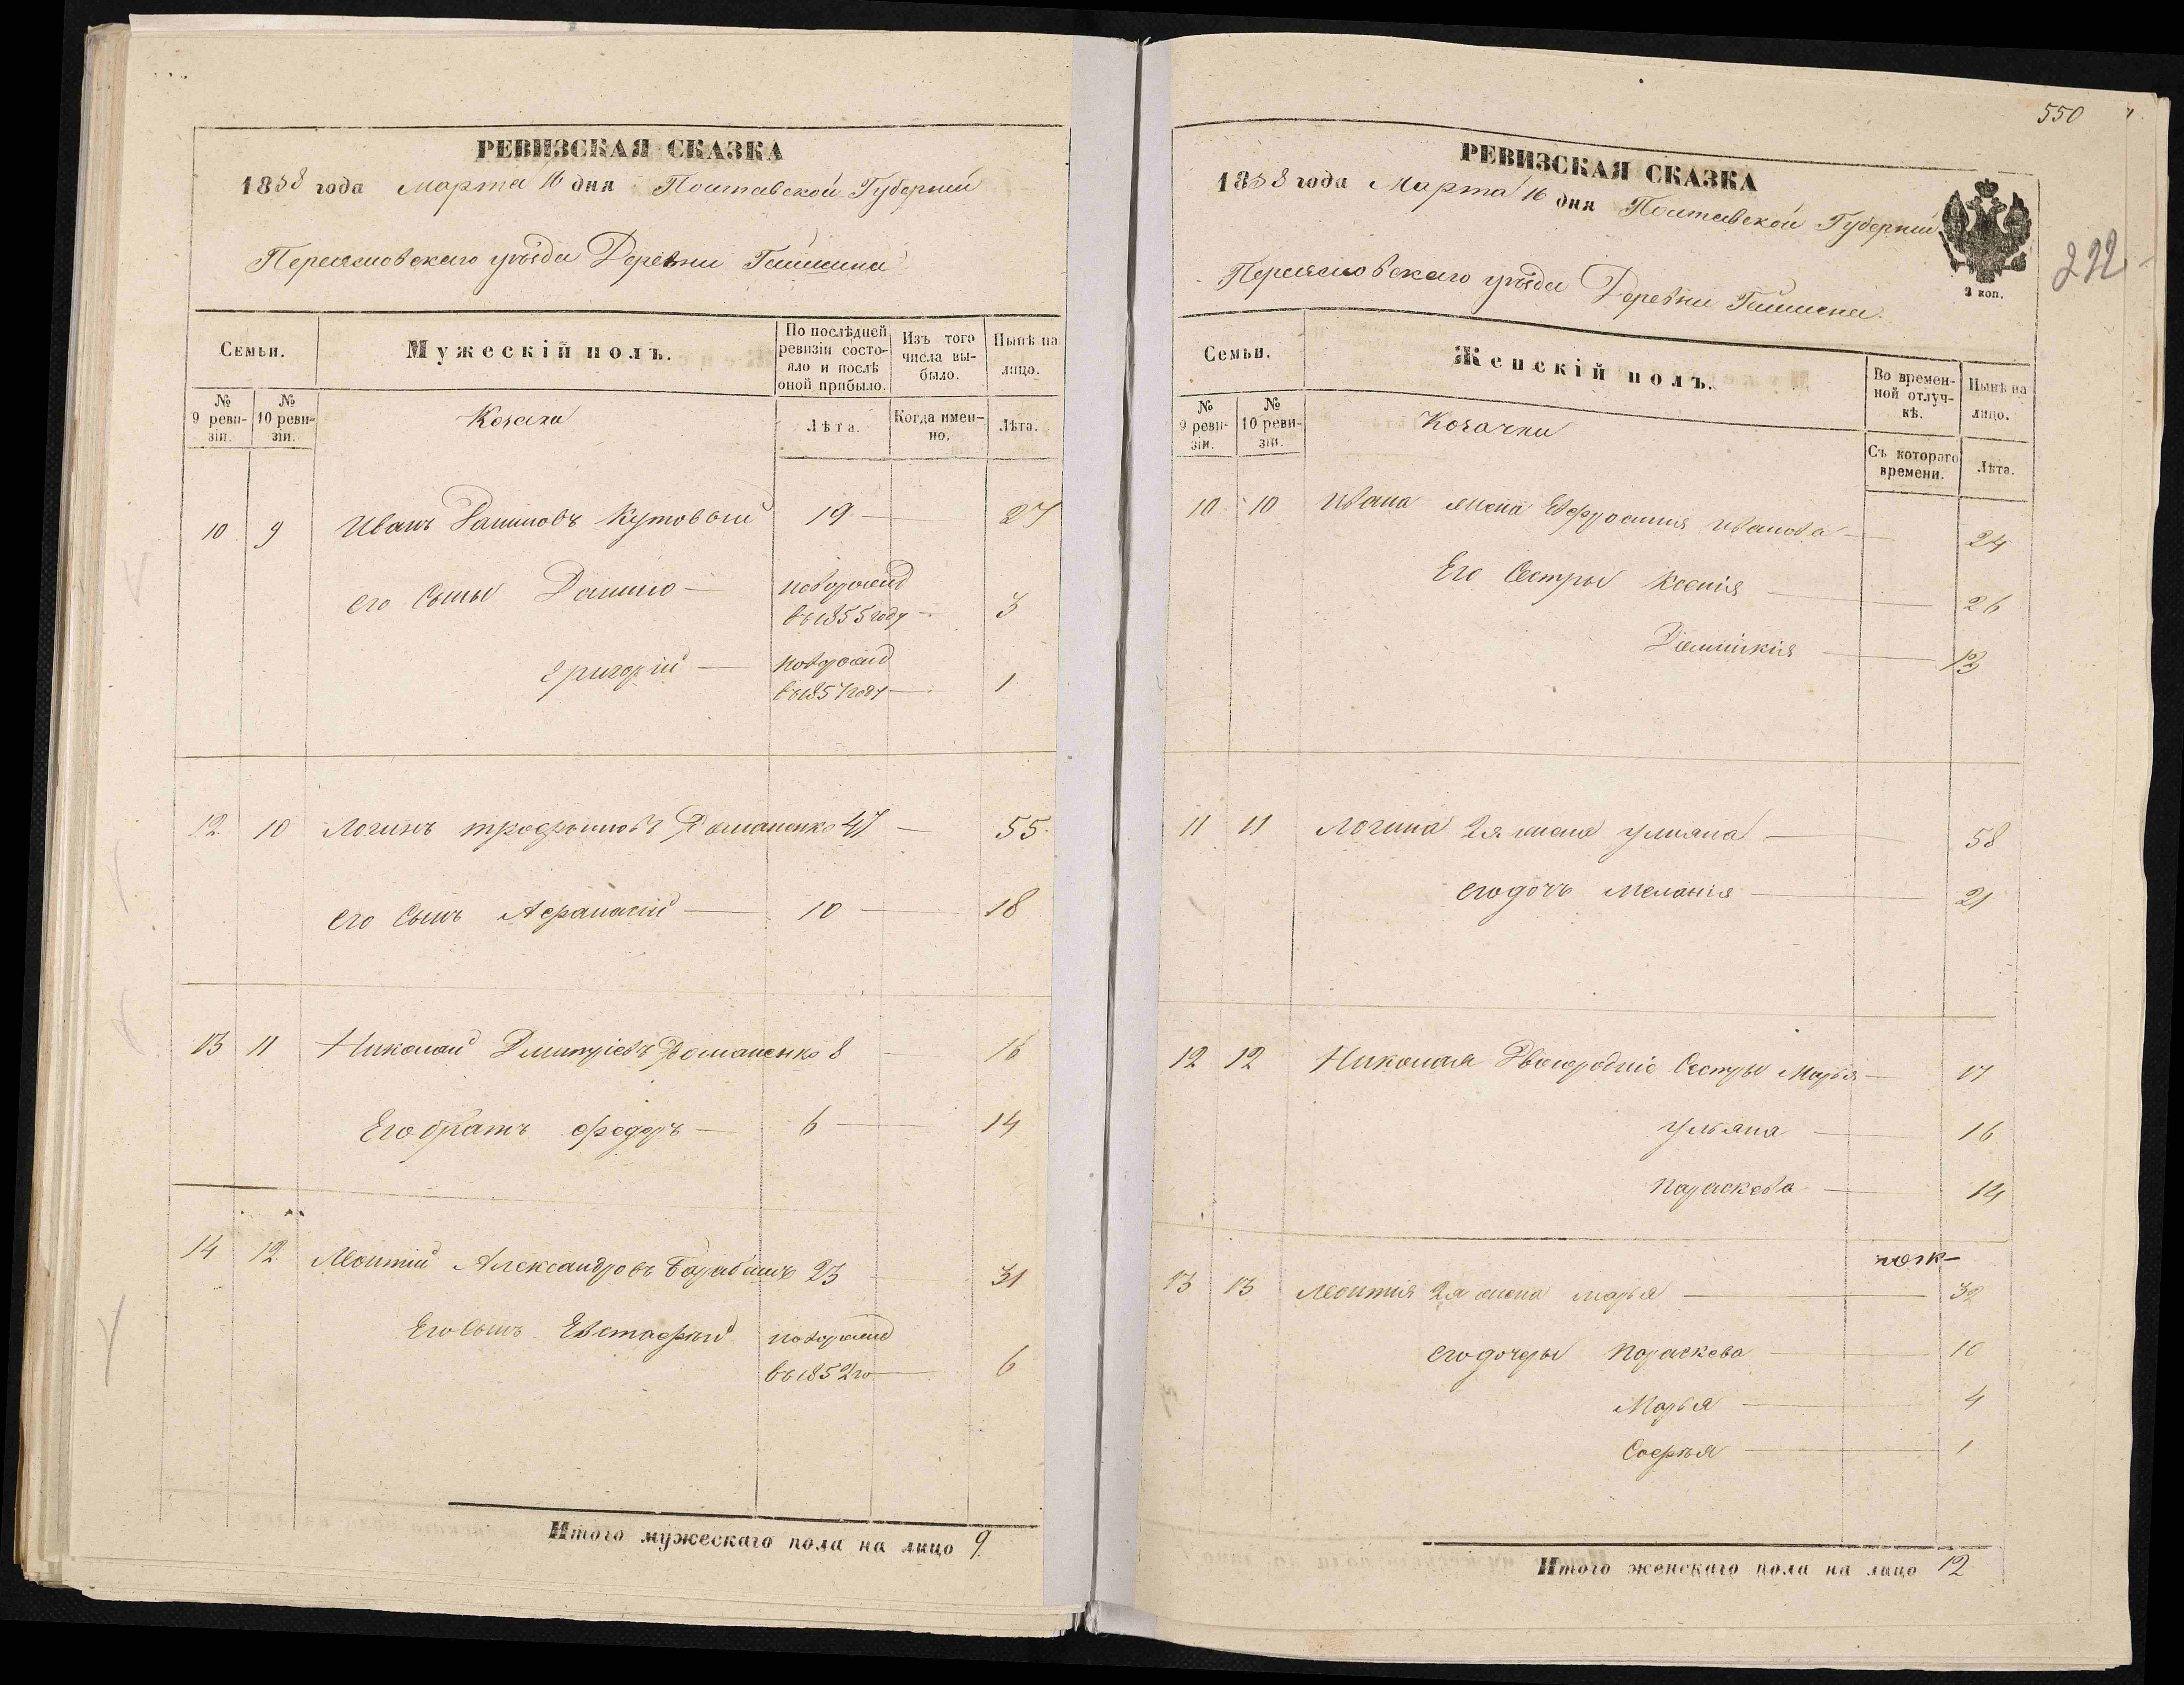 РЕВИЗСКАЯ СКАЗКА
1858 года Марта 16 дня Полтавской Губерніи
Переяславскаго уѣзда Деревни
Семьи.
Мужескій полъ.
По послѣдней ревизіи состояло и послѣ оной прибыло.
Изъ того числа выбыло.
Нынѣ на лицо.
№ 9 ревизіи.
№ 10 ревизіи.
Козаки
Лѣта.
Когда именно.
Лѣта.
10 9 Иванъ Даниловъ Кутовый 19 — 27
его сыны Данило — новорожд
въ 1855 году — 3
Григорій — новорожд
въ 1857 году — 1
12 10 Логинъ трофимовъ Романенко 47 — 55
его сынъ Афанасій — 10 — 18
13 11 Николай Дмитріевъ Романенко 8 — 16
Его братъ федоръ — 6 — 14
14 12 Леонтій Александровъ Барабашъ 23 — 31
Его сынъ Евстафій новорожд
въ 1852 го — 6
Итого мужескаго пола на лицо 9
550
РЕВИЗСКАЯ СКАЗКА
1858 года Марта 16 дня Полтавской Губерніи
Переяславскаго уѣзда Деревни
2 коп.
Семьи.
Женскій полъ.
Во временной отлучкѣ.
Нынѣ на лицо.
№ 9 ревизіи.
№ 10 ревизіи.
Козачки
Съ котораго времени.
Лѣта.
10 10 Ивана жена Ефросинія иванова — 24
Его Сестры Ксенія — 26
— 13
11 11 Логина 2я жена ульяна — 58
его дочь Меланія — 21
12 12 Николая Двоюродніе Сестры Марья — 17
ульяна — 16
Параскева — 14
13 13 Леонтія 2я жена марья — 32
его дочеры Параскева — 10
Марья — 4
Софья — 1
Итого женскаго пола на лицо 12